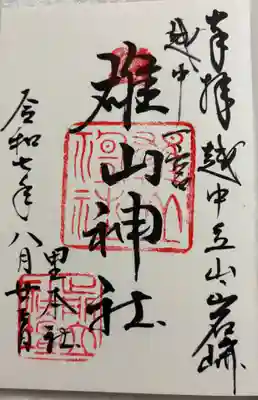 奉拝 越中立山岩峅
越中一宮
雄山神社
里本社
令和七年八月廿一日